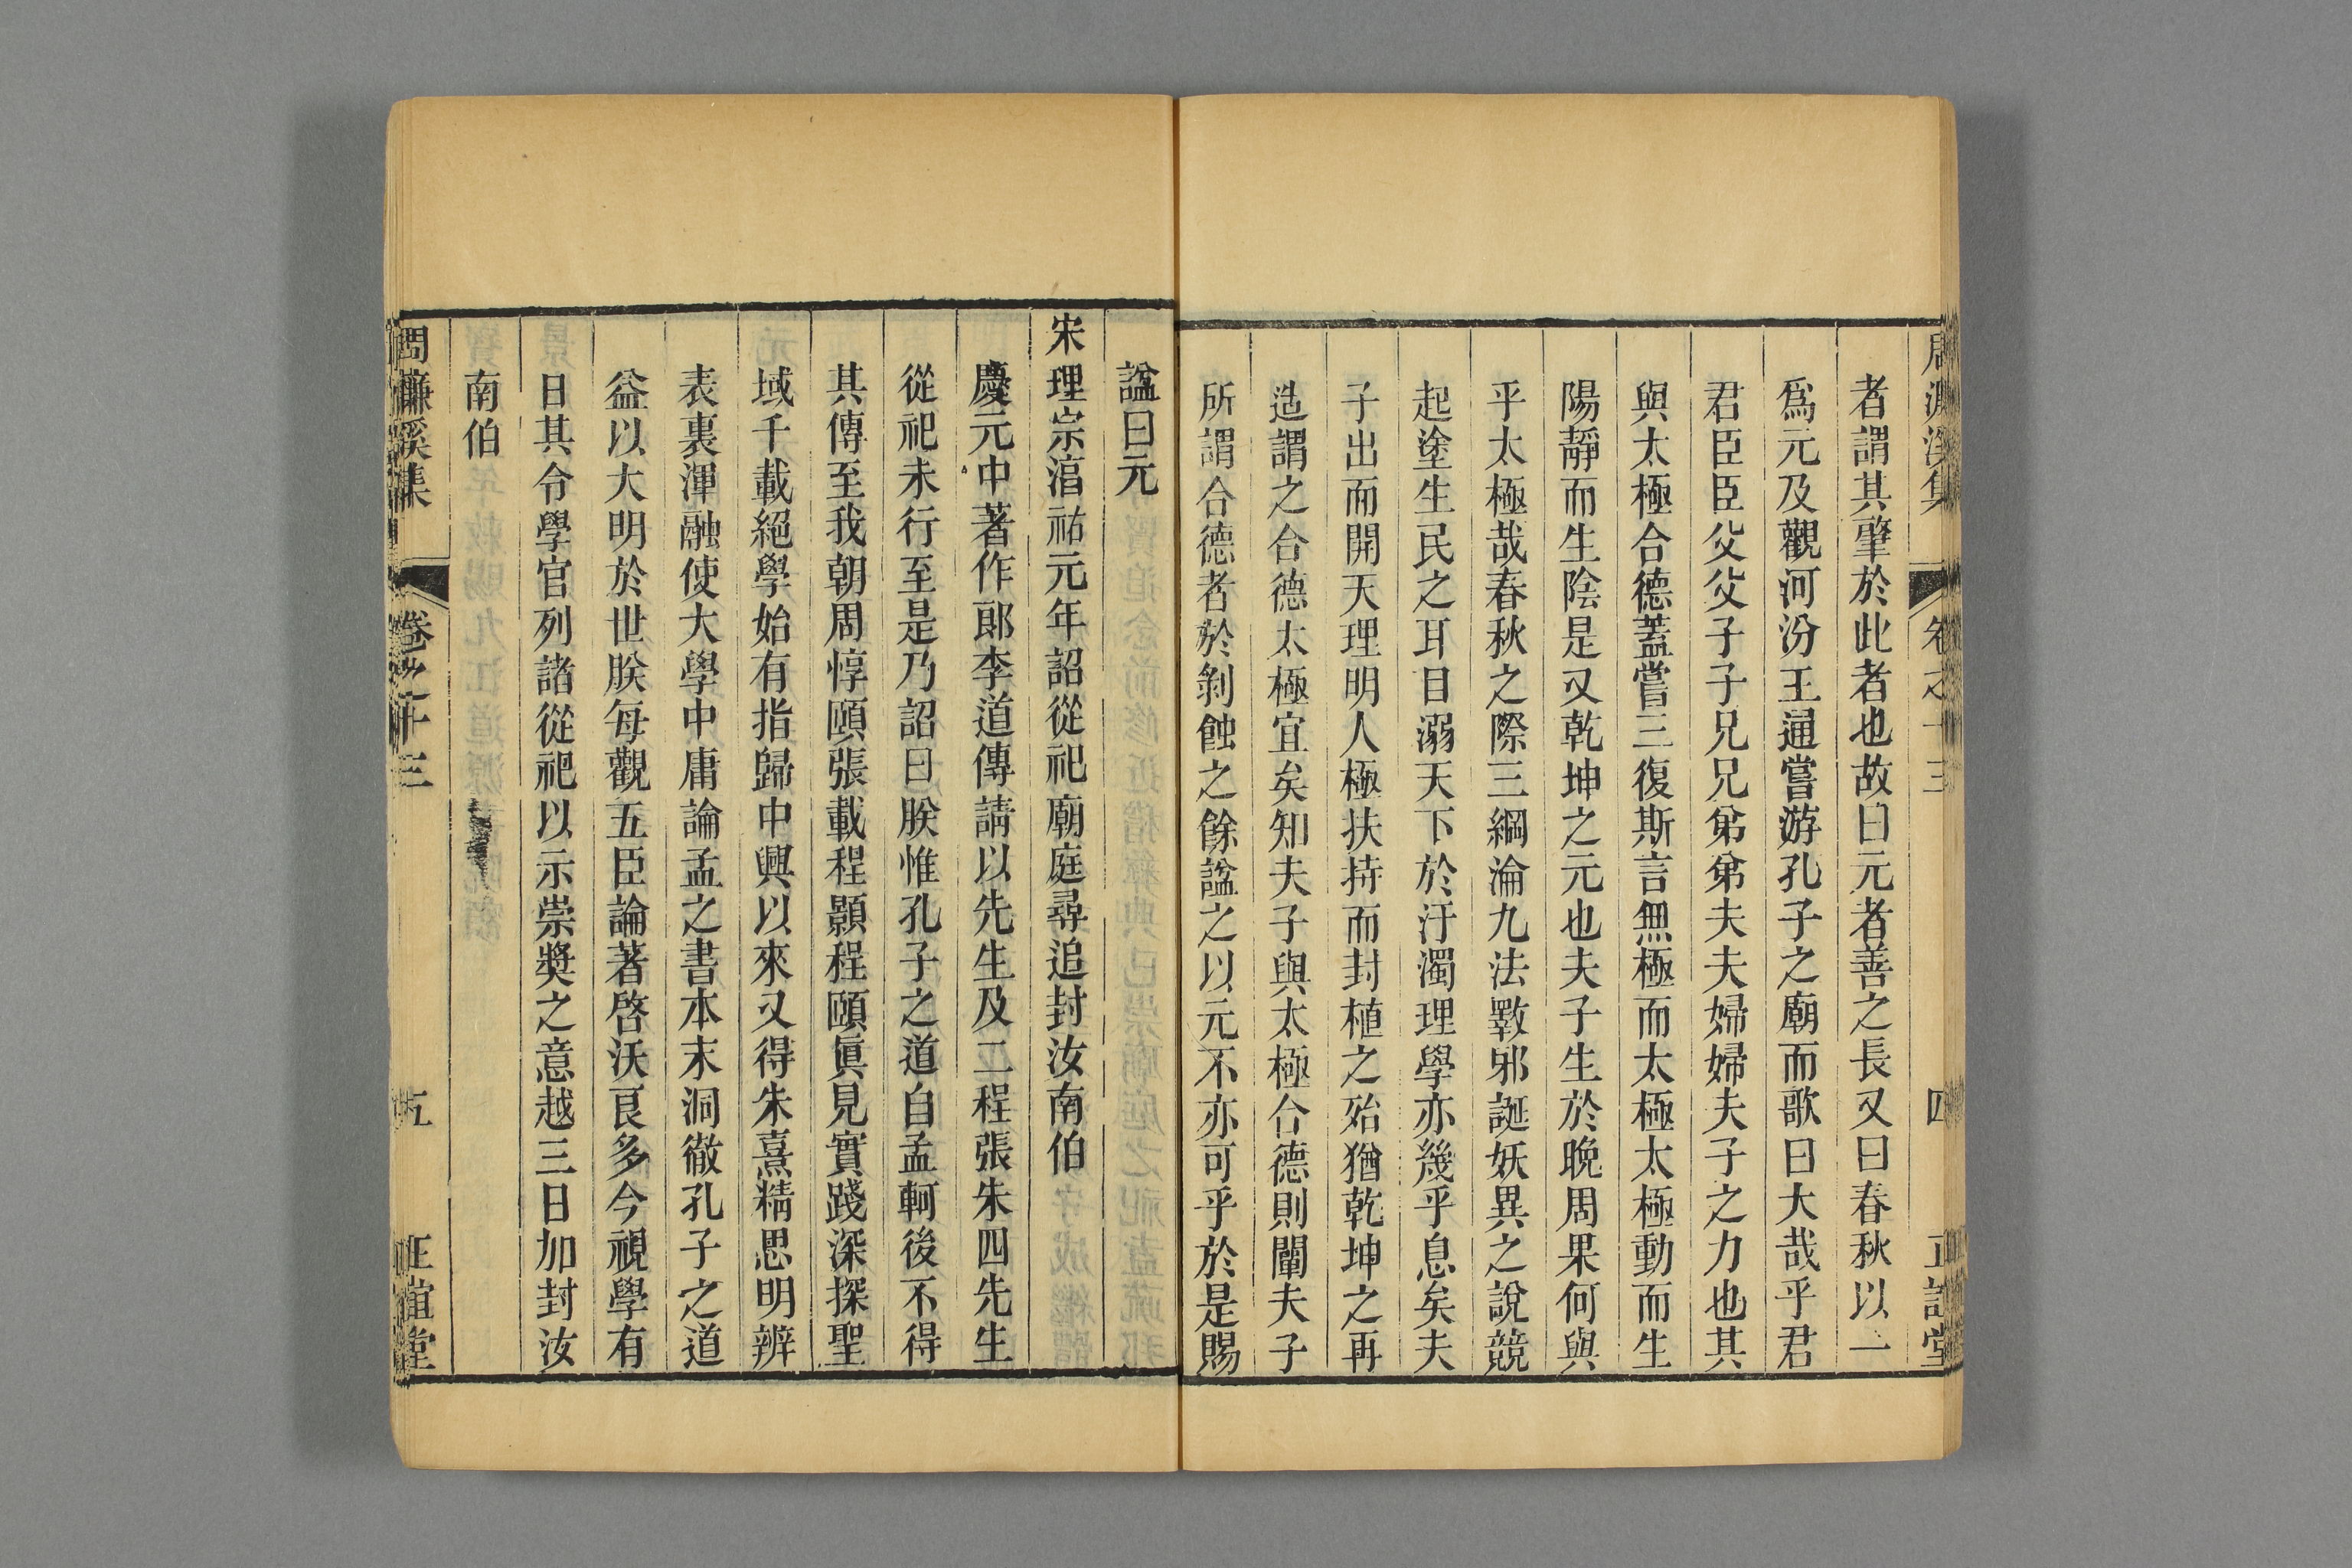 周濂溪集 卷之十三 四 正誼堂
者謂其肇於此者也故曰元者善之長又曰春秋以一
爲元及觀河汾王通嘗游孔子之廟而歌曰大哉乎君
君臣臣父父子子兄兄弟弟夫夫婦婦夫子之力也其
與太極合德蓋嘗三復斯言無極而太極太極動而生
陽靜而生陰是又乾坤之元也夫子生於晚周果何與
乎太極哉春秋之際三綱淪九法斁邪誕妖異之說競
起塗生民之耳目溺天下於汙濁理學亦幾乎息矣夫
子出而開天理明人極扶持而封植之殆猶乾坤之再
造謂之合德太極宜矣知夫子與太極合德則闡夫子
所謂合德者於剝蝕之餘諡之以元不亦可乎於是賜
諡曰元
宋理宗淯祐元年詔從祀廟庭尋追封汝南伯
慶元中著作郎李道傳請以先生及二程張朱四先生
從祀未行至是乃詔曰朕惟孔子之道自孟軻後不得
其傳至我朝周惇頤張載程顥程頤眞見實踐深探聖
域千載絕學始有指歸中興以來又得朱熹精思明辨
表裏渾融使大學中庸論孟之書本末洞徹孔子之道
益以大明於世朕每觀五臣論著啓沃良多今視學有
日其令學官列諸從祀以示崇奬之意越三日加封汝
南伯
周濂溪集 卷之十三 五 正誼堂